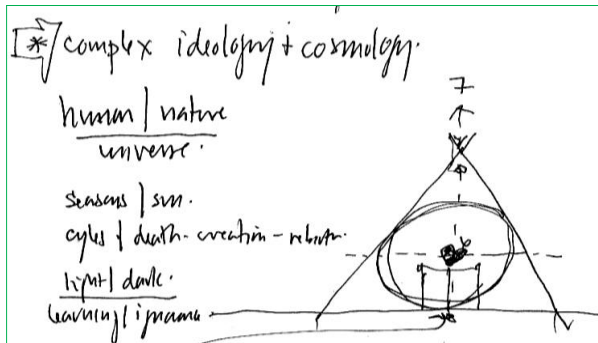 * complex ideology + cosmology.
human | nature
universe.
seasons | sun.
cycles of death-creation-rebirth.
light | dark.
learning |
7